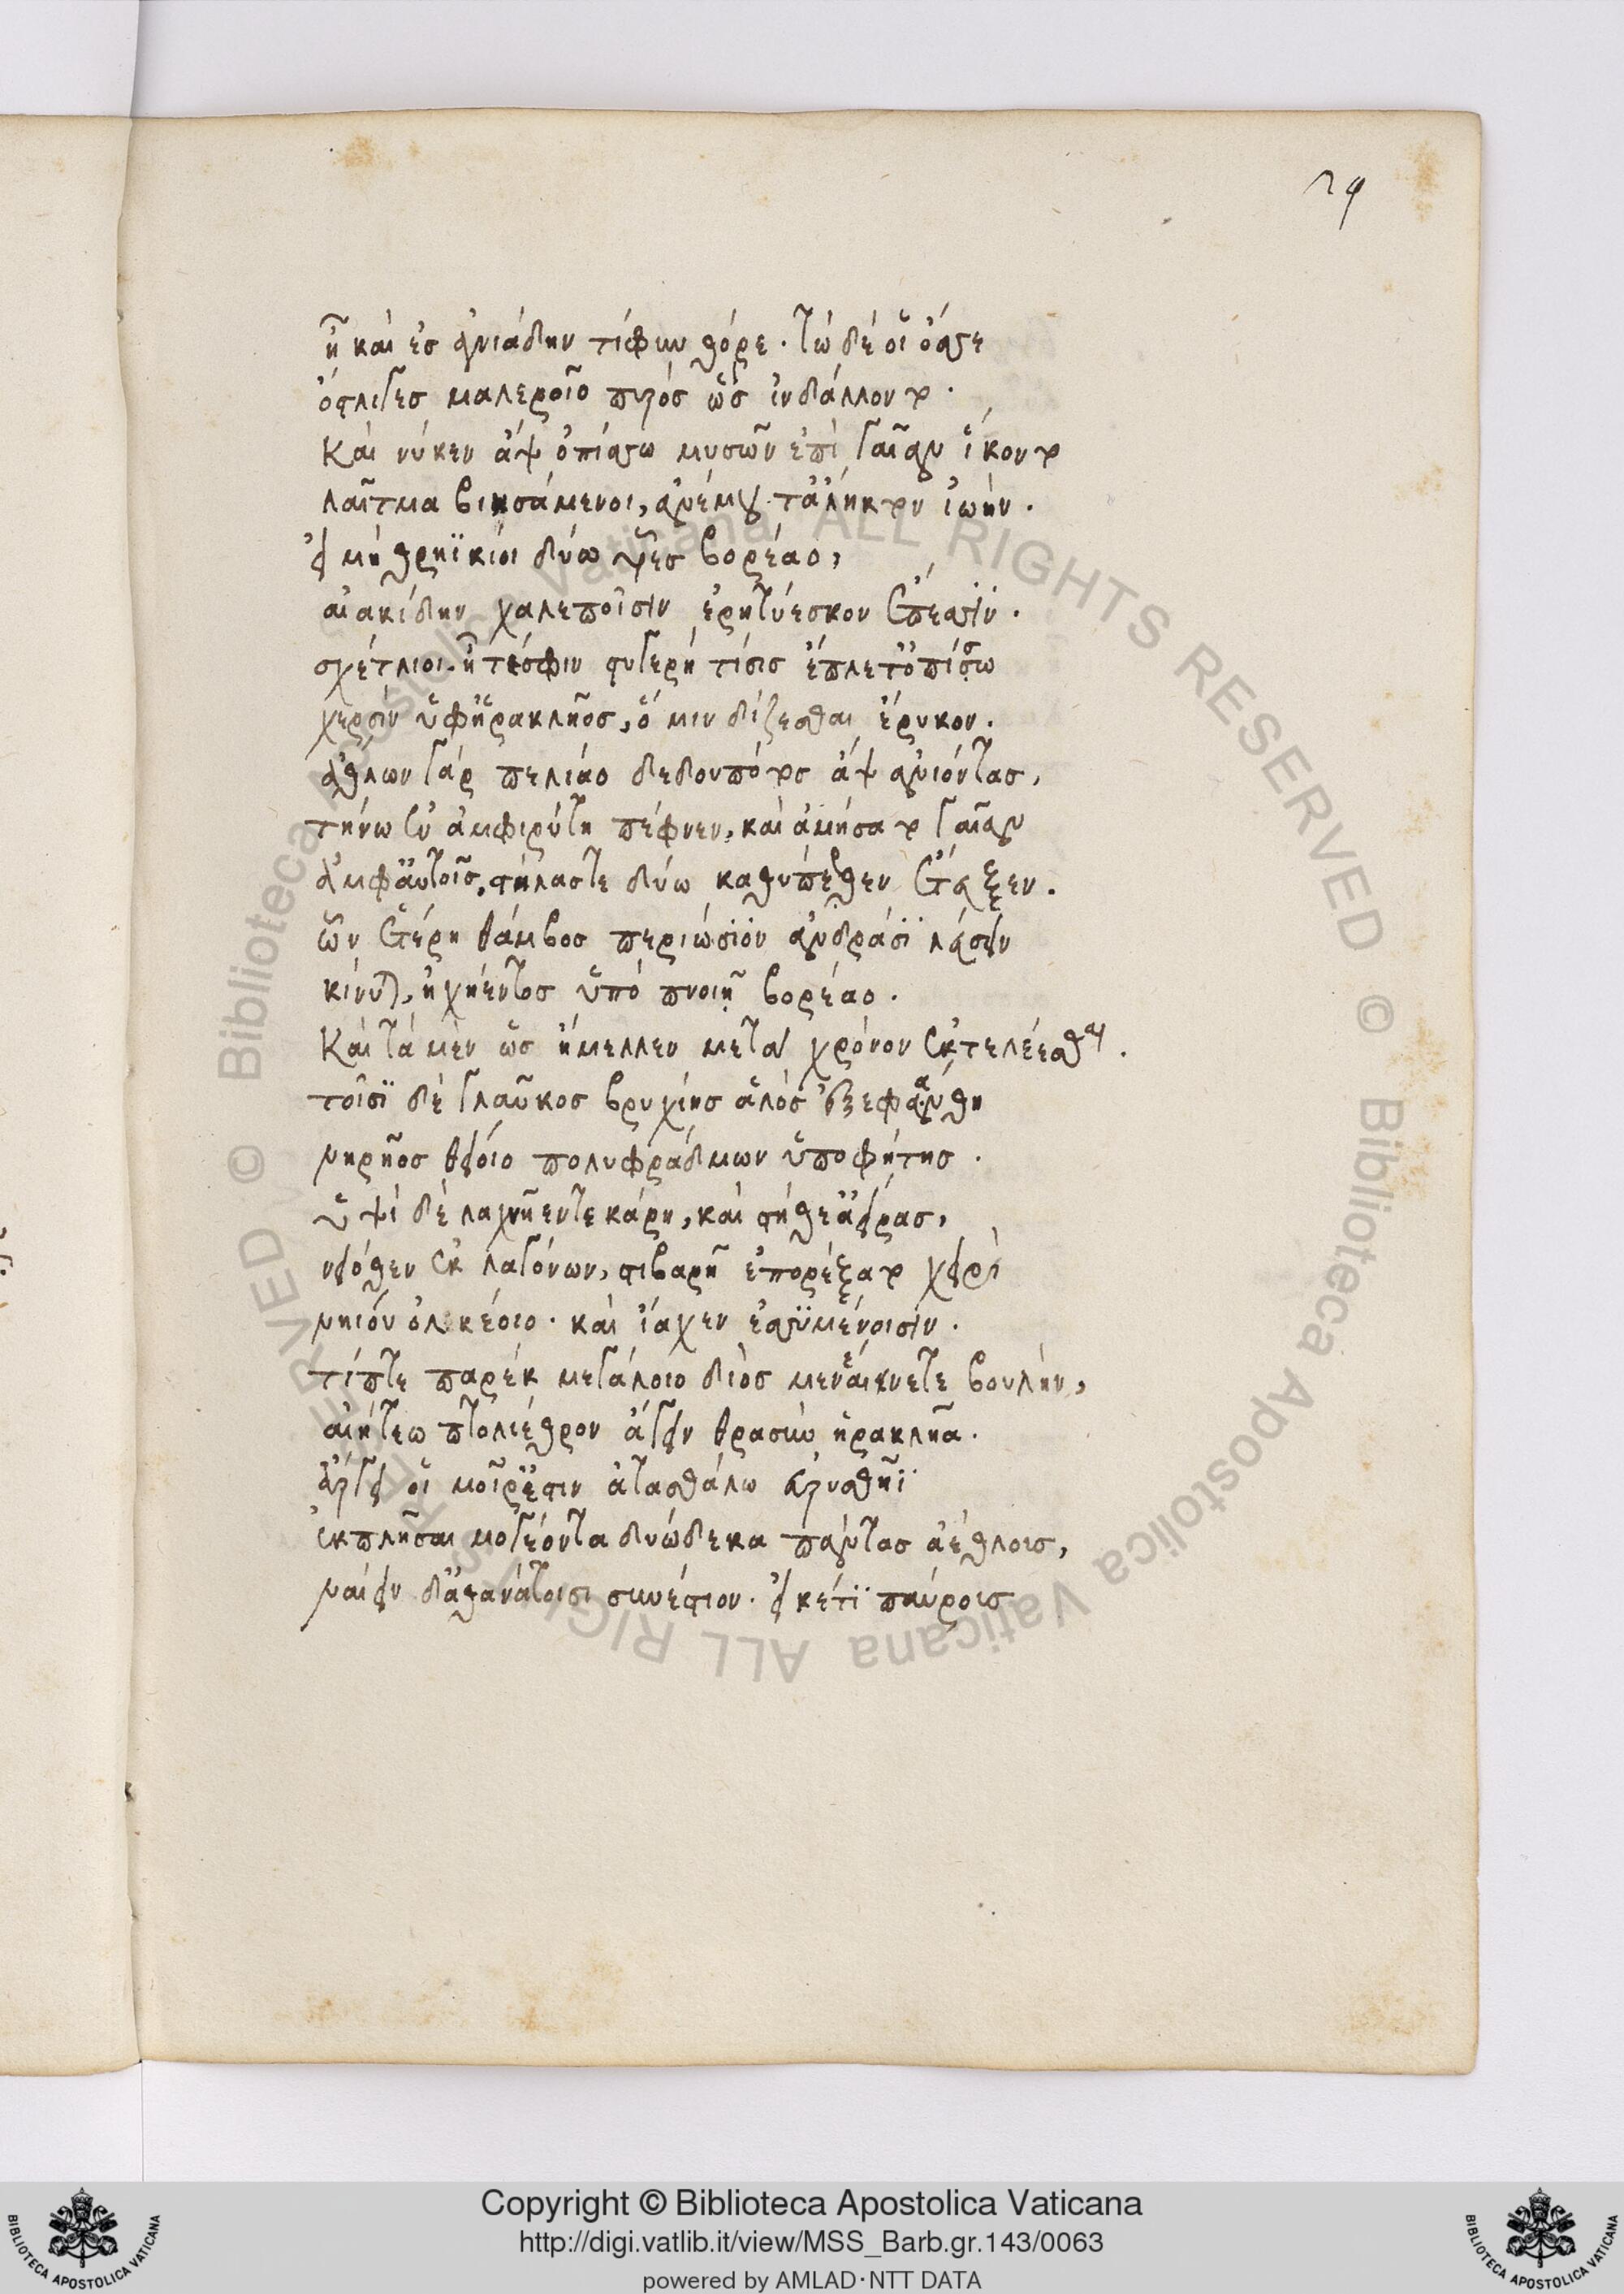 29
ἦ καὶ ἐσ ἁγνιάδην τίφυν θόρε. τὼ δέ οἱ ὄσσε
ὄστλιγγεσ μαλεροῖο πυρὸσ ὣς ἰνδάλλοντο.
Καί νύκεν ἂψ ὀπίσσω μυσῶν ἐπὶ γαῖαν ἵκοντο
λαῖτμα βιησάμενοι, ἀνέμου τ' ἄληκτον ἰωήν.
εἰ μὴ θρηϊκίοι δύω υἷεσ βορέαο,
αἰακίδην χαλεποῖσιν ἐρητύεσκον ἔπεσσιν.
σχέτλιοι. ἦ τέσφιν στυγερὴ τίσισ ἔπλετ' ὀπίσσω
χερσὶν ὑφ' ἡρακλῆοσ, ὅ μιν δίζεσθαι ἔρυκον.
ἄθλων γὰρ πελίαο δεδουπότοσ ἂψ ἀνιόντασ,
τήνω ἐν ἀμφιρύτη πέφνεν, καὶ ἀμήσατο γαῖαν
ἀμφ' αὐτοῖσ, στήλασ τε δύω καθύπερθεν ἔτευξεν.
ὧν ἑτέρη θάμβοσ περιώσϊον ἀνδράσϊ λεύσειν
κίνυται, ἠχήεντοσ ὑπὸ πνοιῇ βορέαο.
Καὶ τὰ μὲν ὣσ ἤμελλεν μετὰ χρόνον ἐκτελέεσθαι.
τοῖσϊ δὲ γλαῦκοσ βρυχίησ ἁλὸς ἐξεφαάνθη
νηρῆοσ θείοιο πολυφράδμων ὑποφήτησ.
ὕψι δὲ λαχνῆεντε κάρη, καὶ στήθε' ἀείρασ,
νειόθεν ἐκ λαγόνων, στιβαρῇ ἐπορέξατο χειρὶ
νηιοῦ ὁλκέοιο. καὶ ἴαχεν ἐσσϋμένοισϊν.
τίπτε παρὲκ μεγάλοιο διὸσ μενεαίνετε βουλὴν,
αἰήτεω πτολίεθρον ἄγειν θρασὺν ἡρακλῆα.
ἄργεϊ οἱ μοῖρ' ἐστιν ἀτασθάλω εὐρυσθῆϊ
ἐκπλῆσαι μογέοντα δυώδεκα πάντασ ἀέθλουσ,
ναίειν δ' ἀθανάτοισι συνέστιον. εἰ κέτϊ παύρουσ
Copyright © Biblioteca Apostolica Vaticana
http://digi.vatlib.it/view/MSS_Barb.gr.143/0063
powered by AMLAD·NTT DATA